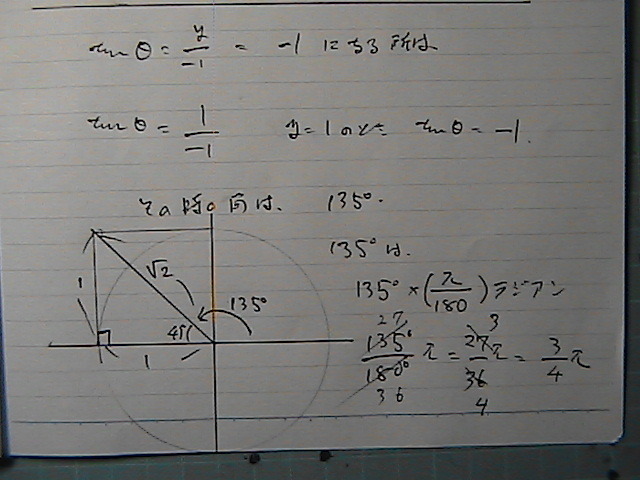 tanθ = y/-1 = -1 になる所は
tanθ = 1/-1 y=1のとき tanθ = -1.
その時の角は、 135°.
135°は、
135° × (π/180) ラジアン
135°/180° π = 27/36 π = 3/4 π
27 3
36 4
√2
135°
45°
1
1